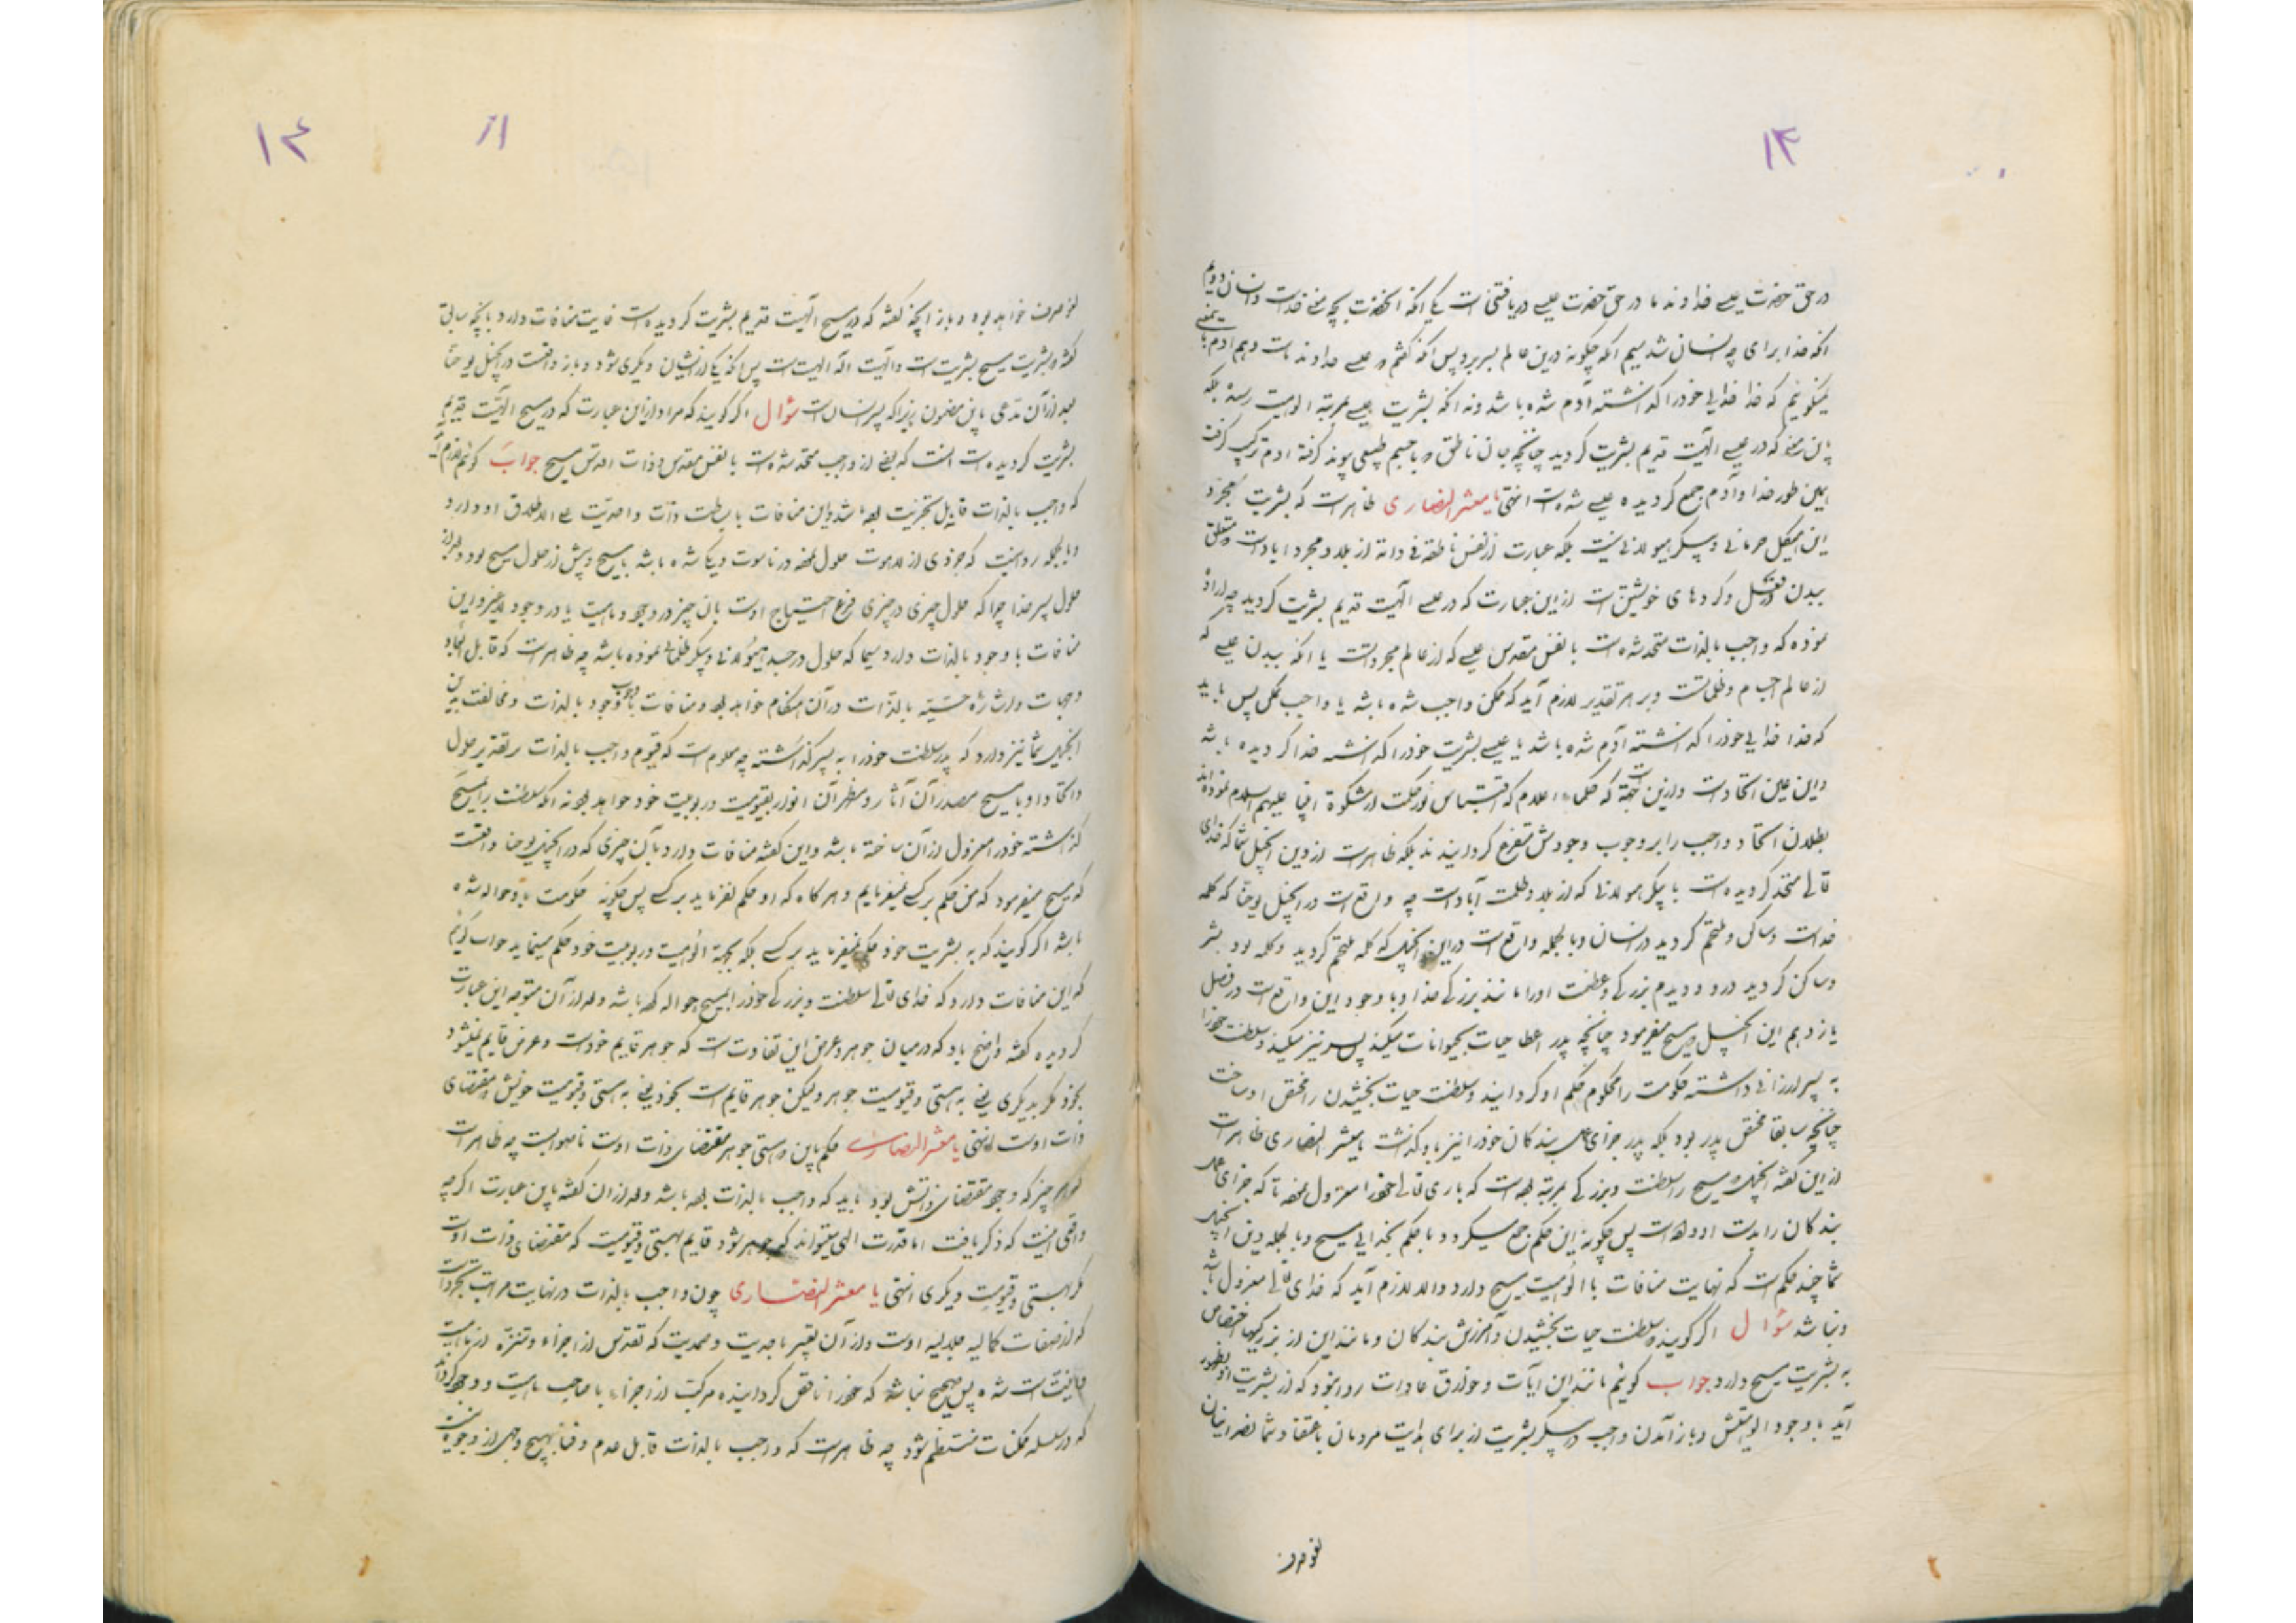 ۱۳
در حق حضرت عیسی خداوند ما در حق حضرت عیسی دریافتنی است یکی آنکه آنحضرت بچه معنی خداست و انسان دویم
آنکه خدا برای چه انسان شد سیم آنکه چگونه درین عالم بسر برد پس آنکه گفتم که عیسی خداوند ماست و هم آدم
نمیگویم که خدا خدایی خود را گذاشته آدم شده باشد و نه آنکه بشریت عیسی بمرتبه الوهیت رسیده بلکه
باین معنی که در عیسی الهیت قدیم بشریت گردید چنانچه جان ناطق و با جسم طبیعی پیوند گرفته آدم ترکیب گرفت
بهمین طور خدا و آدم جمع گردیده عیسی شده است انتهی یا معشر النصاری ظاهر است که بشریت مجرد
این هیکل جرمانی و پیکر هیولانی نیست بلکه عبارت از نفس ناطقه ذاته از بلاد مجرد آباد است و متعلق
ببدن و گردهای خویشتن است از این عبارت که در عیسی الهیت قدیم بشریت گردید چه اراده
نموده که واجب بالذات متحد شده است با نفس مقدس عیسی که از عالم مجرد است یا آنکه ببدن عیسی که
از عالم اجسام و ظلمات است و بر هر تقدیر لازم آید که ممکن واجب شده باشد یا واجب ممکن پس باید
که خدا خدایی خود را گذاشته آدم شده باشد یا عیسی بشریت خود را گذاشته خدا گردیده باشد
و این عین اتحاد است و ازین جهة است که حکماء اعلام که اقتباس نور حکمت از مشکوة انبیا علیهم السلام نموده‌اند
بطلان اتحاد واجب را بر وجوب وجودش متفرع گردانیدند بلکه ظاهر است از دین انجیل شما که خدای
تعالی متحد گردیده است با پیکر هیولانی که از بلاد ظلمت آباد است چه واقع است در انجیل یوحنا که کلمه
خداست و ساکن و ملتحم گردید در انسان و بالجمله واقع است در این انجیل که کلمه ملتحم گردید و کلمه بود بشر
و ساکن گردید درو و دیدم بزرگی و عظمت او را مانند بزرگی خدا و با وجود این واقع است در فصل
یازدهم این انجیل مسیح میفرمود چنانچه پدر اعطا حیات بحیوانات میکند پسر نیز میکند و سلطنت خود را
به پسر ارزانی داشته حکومت را محکوم حکم او گردانید و سلطنت حیات بخشیدن را مختص او ساخت
چنانچه سابقا مختص پدر بود بلکه پدر جزای عمل بندگان خود را نیز باو گذاشت یا معشر النصاری ظاهر است
از این گفته انجیل که مسیح را سلطنت و بزرگی بمرتبه بوده است که باری تعالی خود را معزول نموده تا که جزای عمل
بندگان را بدست او داده است پس چگونه این حکم جمع میگردد با حکم بخدایی مسیح و بالجمله درین انجیل
شما چند حکم است که نهایت منافات با الوهیت مسیح دارد و الا لازم آید که خدای تعالی معزول باشد
و نباشد سؤال اگر گویند سلطنت حیات بخشیدن و آمرزش بندگان و مانند این از بزرگیها اختصاص
به بشریت مسیح دارد جواب گویم مانند این آیات و خوارق عادات روا نبود که از بشریت او بظهور
آید با وجود الوهیتش و باز آمدن واجب در پیکر بشریت از برای هدایت مردمان باعتقاد شما نصرانیان
لغو صرف
۱۴
لغو صرف خواهد بود و باز آنچه گفته که در مسیح الهیت قدیم بشریت گردیده است غایت منافات دارد بآنچه سابق
گفته بشریت مسیح بشریت است و الهیت اله الهیت است پس آنکه یکی از ایشان دیگری شود و باز واقعست در انجیل یوحنا
بعد از آن مدعی باین مضمون زیرا که پسر انسان است سؤال اگر گویند که مراد از این عبارت که در مسیح الهیت قدیم
بشریت گردیده است آنست که یعنی از واجب متحد شده است با نفس مقدس و ذات اقدس مسیح جواب گویم لازم آید
که واجب بالذات قابل تجزیت بوده باشد و این منافات با بساطت ذات و احدیت علی الاطلاق او دارد
و بالجمله روا نیست که جزوی از لاهوت حلول نموده در ناسوت و یکتا شده باشد با مسیح و پیش از حلول مسیح بود
حلول پسر خدا چرا که حلول چیزی در چیزی فرع احتیاج اوست بآن چیز در وجود و ماهیت یا در وجود لا غیر و این
منافات با وجود بالذات دارد سیما که حلول در جسد هیولانی و پیکر ظلمانی نموده باشد چه ظاهر است که قابل ابعاد
و جهات و اشاره حسیه بالذات در آن هنگام خواهد بود و منافات با وجوب وجود بالذات و مخالفت به این
انجیل شما نیز دارد که پدر سلطنت خود را به پسر گذاشته چه معلوم است که قیوم واجب بالذات بر تقدیر حلول
و اتحاد او با مسیح مصدر آن آثار و مظهر آن انوار بقیومیت و ربوبیت خود خواهد بود نه آنکه سلطنت را بمسیح
گذاشته خود را معزول از آن ساخته باشد و این گفته منافات دارد بآن چیزی که در انجیل یوحنا واقعست
که مسیح میفرمود که من حکم بر کسی نمیفرمایم و هر گاه که او حکم نفرماید بر کسی پس چگونه حکومت باو حواله شده
باشد اگر گویند که به بشریت خود حکم نمیفرماید بر کسی بلکه بجهة الوهیت و ربوبیت خود حکم مینماید جواب گویم
که این منافات دارد که خدای تعالی سلطنت و بزرگی خود را بمسیح حواله کرده باشد و بعد از آن متوجه این عبارت
گردیده گفته واضح باد که در میان جوهر و عرض این تفاوت است که جوهر قایم خود است و عرض قایم نمیشود
بخود مگر بدیگری یعنی به هستی و قیومیت جوهر و لیکن جوهر قایم است بخود یعنی به هستی و قیومیت خویش مقتضای
ذات اوست انتهی یا معشر النصاری حکم باین که هستی جوهر مقتضای ذات اوست ناصوابست چه ظاهر است
که هر چیز که وجود مقتضای ذاتش بود باید که واجب بالذات بوده باشد و بعد از آن گفته باین عبارت اگر چه
واقعی اینست که ذکر یافت اما قدرت الهی میتواند که جوهر شود قایم بهستی و قیومیت که مقتضای ذات اوست
مگر بهستی و قیومیت دیگری انتهی یا معشر النصاری چون واجب بالذات در نهایت مراتب تجرد است
که از صفات کمالیه جلالیه اوست و از آن تعبیر باحدیت و صمدیت که تقدس از اجزاء و تنزه از ماهیت
شده پس صحیح نباشد که خود را ناقص گردانیده مرکب از اجزاء یا صاحب ماهیت و وجود گردد
که در سلسله ممکنات منتظم شود چه ظاهر است که واجب بالذات قابل عدم و فنا بهیچ وجهی از وجوه نیست